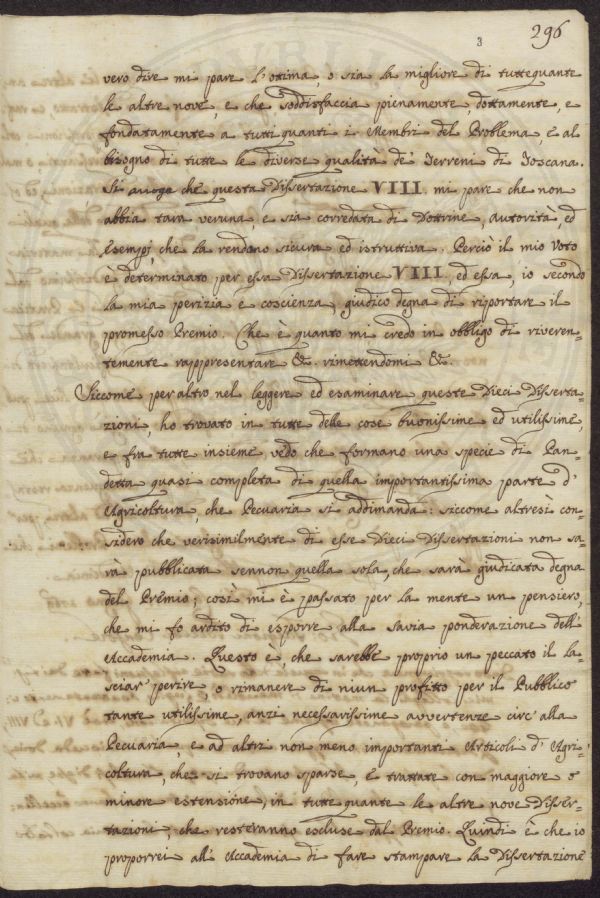 3 296
vero dire mi pare l'ottima, o sia la migliore di tuttequante
le altre nove, e che soddisfaccia pienamente, dottamente, e
fondatamente a tutti quanti i Membri del Problema, e al
bisogno di tutte le diverse qualità de' Terreni di Toscana.
Si che questa Dissertazione VIII. mi pare che non
abbia tara veruna, e sia corredata di Dottrine, autorità, ed
Esempj, che la rendono sicura ed istruttiva. Perciò il mio Voto
è determinato per essa Dissertazione VIII, ed essa, io secondo
la mia perizia e coscienza, giudico degna di riportare il
promesso Premio. Che è quanto mi credo in obbligo di riveren-
temente rappresentare &. rimettendomi &.
Siccome per altro nel leggere ed esaminare queste Dieci Disserta-
zioni, ho trovato in tutte delle cose buonissime ed utilissime,
e fra tutte insieme vedo che formano una specie di Pan-
detta quasi completa di quella importantissima parte d'
Agricoltura, che Pecuaria si addimanda: siccome altresì con-
sidero che verisimilmente di esse Dieci Dissertazioni non sa-
rà pubblicata sennon quella sola, che sarà giudicata degna
del Premio; così mi è passato per la mente un pensiero,
che mi fo ardito di esporre alla savia ponderazione dell'
Accademia. Questo è, che sarebbe proprio un peccato il la-
sciar perire, o rimanere di niun profitto per il Pubblico
tante utilissime, anzi necessarissime avvertenze circ' alla
Pecuaria, e ad altri non meno importanti Articoli d' Agri-
coltura, che si trovano sparse, e trattate con maggiore o
minore estensione, in tutte quante le altre nove Disser-
tazioni, che resteranno escluse dal Premio. Quindi è che io
proporrei all' Accademia di fare stampare la Dissertazione